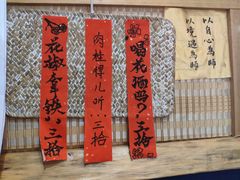 以自心為師
以境遇為師
喝花酒嗎?:三拾
肉桂悍儿听:三拾
花椒拿鉄:三拾